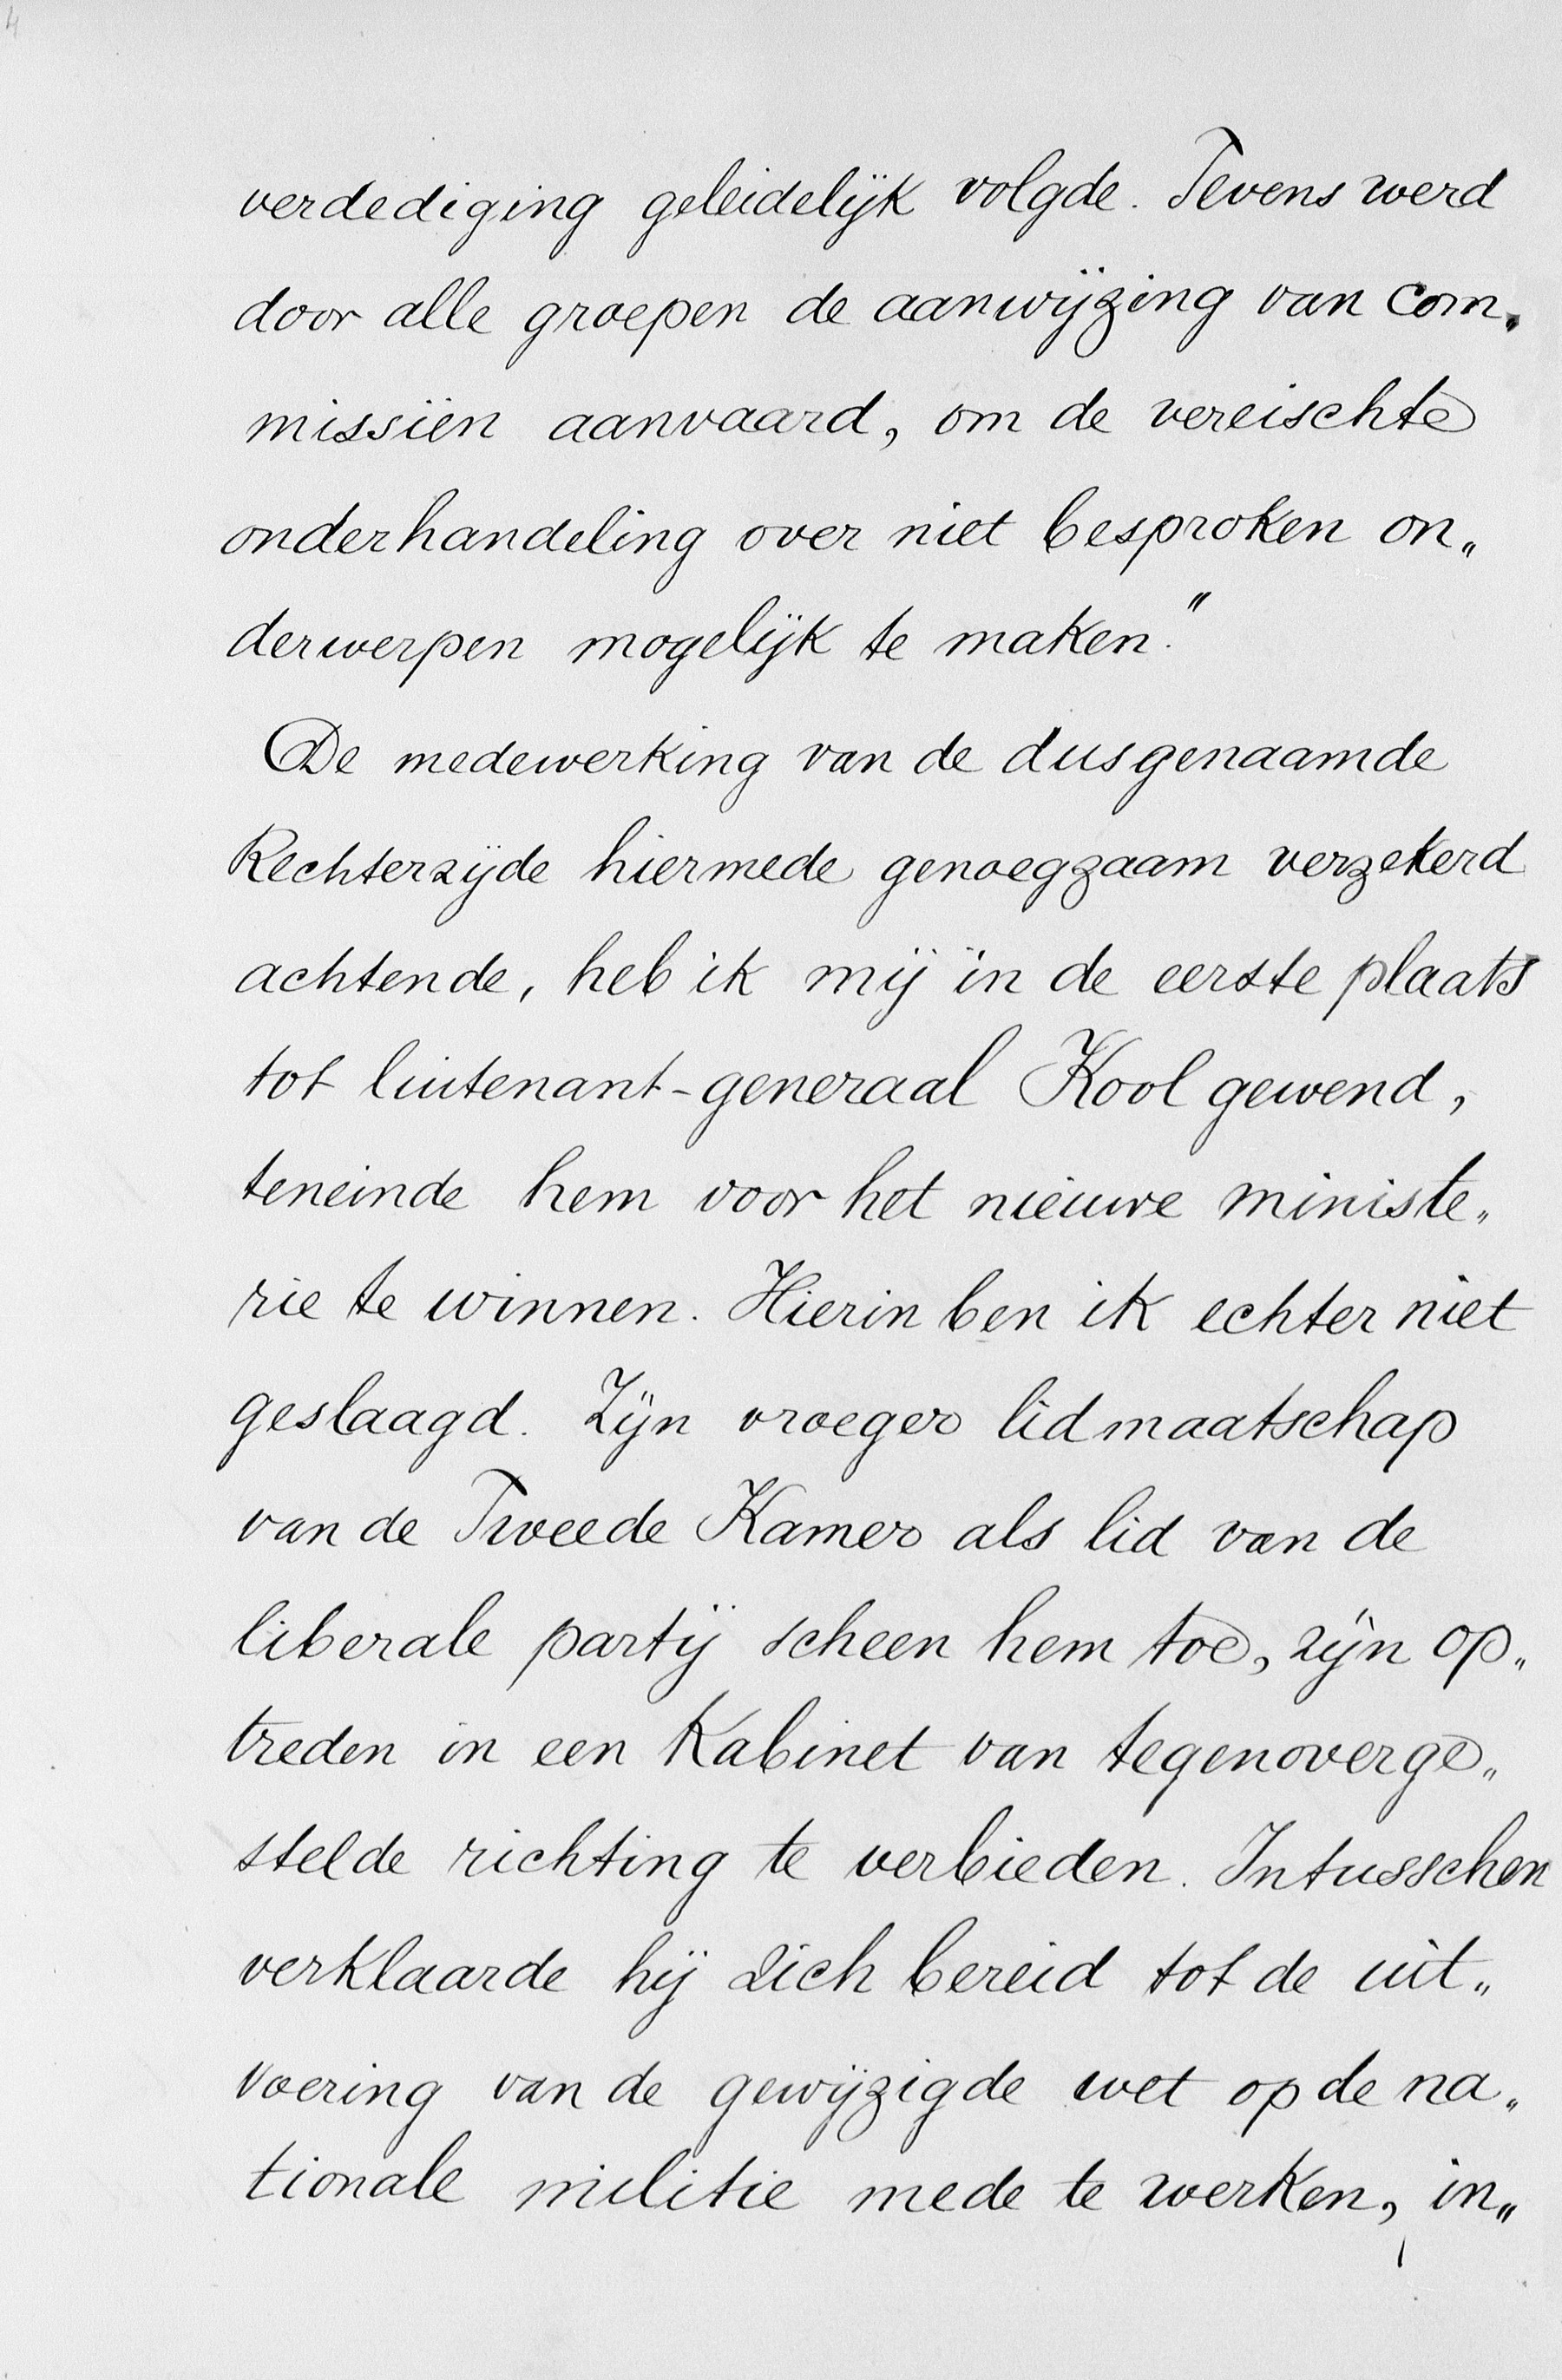 4
verdediging geleidelijk volgde. Tevens werd
door alle groepen de aanwijzing van com„
missiën aanvaard, om de vereischte
onderhandeling over niet besproken on„
derwerpen mogelijk te maken."
De medewerking van de dusgenaamde
Rechterzijde hiermede genoegzaam verzekerd
achtende, heb ik mij in de eerste plaats
tot luitenant-generaal Kool gewend,
teneinde hem voor het nieuwe ministe„
rie te winnen. Hierin ben ik echter niet
geslaagd. Zijn vroeger lidmaatschap
van de Tweede Kamer als lid van de
liberale partij scheen hem toe, zijn op„
treden in een Kabinet van tegenoverge„
stelde richting te verbieden. Intusschen
verklaarde hij zich bereid tot de uit„
voering van de gewijzigde wet op de na„
tionale militie mede te werken, in„